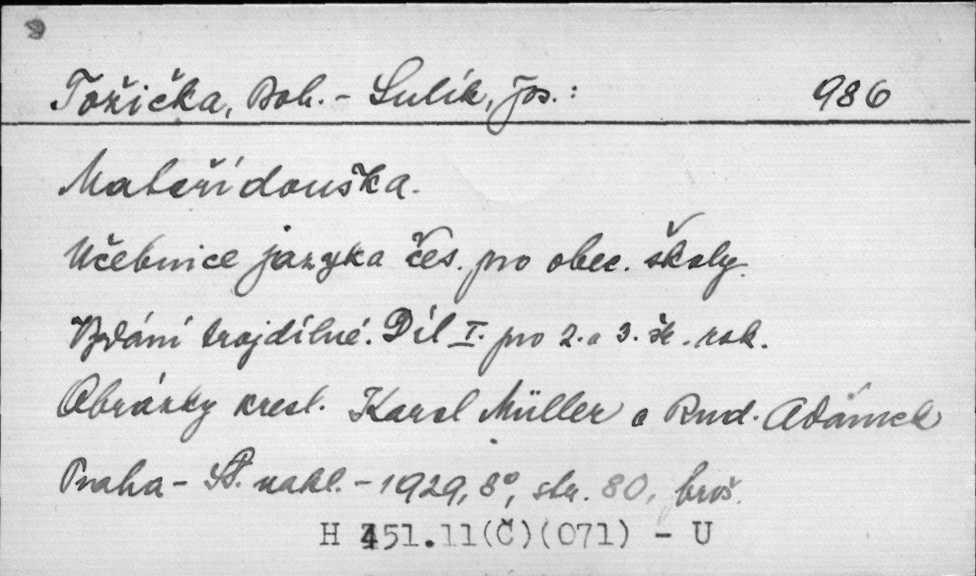 Tožička, Boh. - Sulík, Jos.: 986
Mateřídouška.
Učebnice jazyka čes. pro obec. školy.
Vydání trojdílné. Díl I. pro 2. a 3. šk. rok.
Obrázky kresl. Karel Müller a Rud. Adámek
Praha - St. nakl. - 1929, 8°, str. 80, brož.
H 451.11(Č)(071) - U